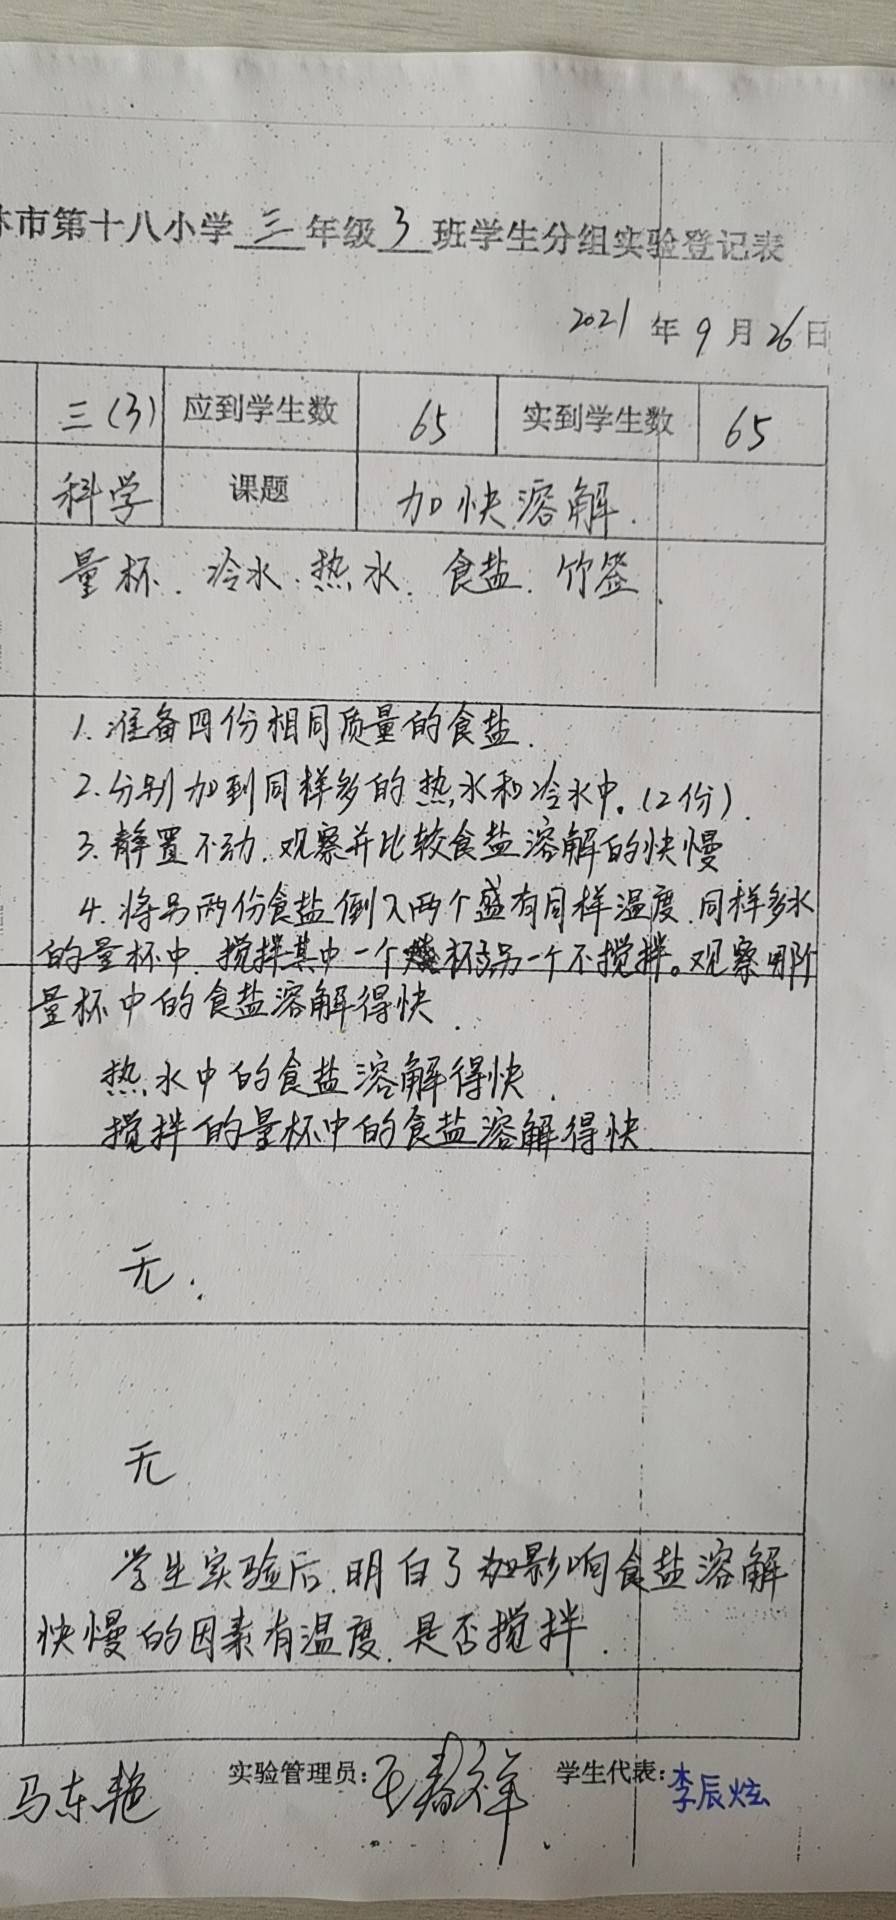 市第十八小学三年级3班学生分组实验登记表
2021年9月26日
三(3) 应到学生数 65 实到学生数 65
科学 课题 加快溶解.
量杯.冷水.热水.食盐.竹签.
1.准备四份相同质量的食盐.
2.分别加到同样多的热水和冷水中。(2份).
3.静置不动.观察并比较食盐溶解的快慢
4.将另两份食盐倒入两个盛有同样温度.同样多水
的量杯中.搅拌其中一个杯另一个不搅拌。观察哪个
量杯中的食盐溶解得快.
热水中的食盐溶解得快.
搅拌的量杯中的食盐溶解得快.
无.
无
学生实验后.明白了影响食盐溶解
快慢的因素有温度.是否搅拌.
马东艳 实验管理员: 学生代表:李辰炫